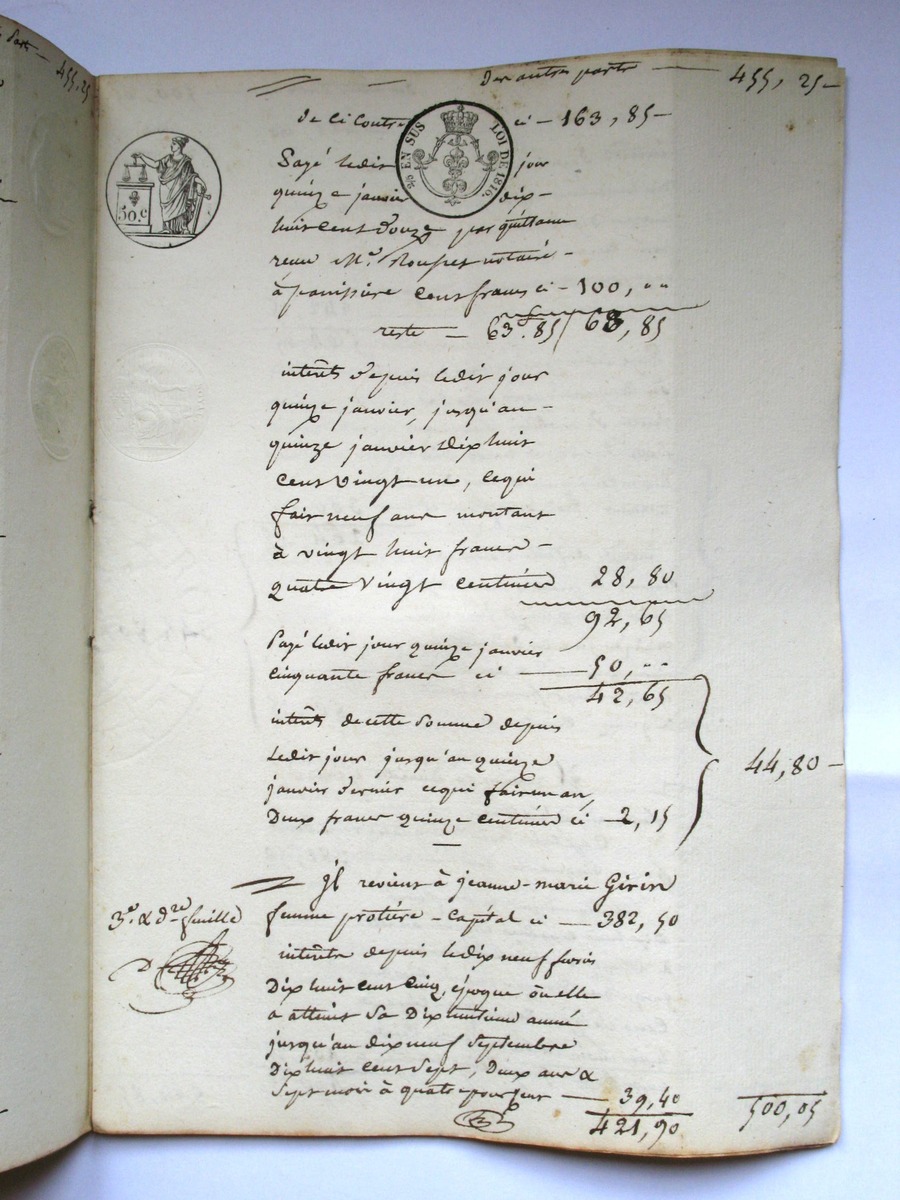 Des autres parts — 455, 25 —
455, 25
de ci contre ci — 163, 85 —
EN SUS LOI DE 1816
50.c
Payé ledit jour
quinze janvier dix-
huit cent douze par quittance
reçue Me. notaire -
à panissière cent francs ci — 100, ..
reste — 63f. 85 / 63, 85
intérêts depuis ledit jour
quinze janvier, jusqu'au -
quinze janvier dix huit
cent vingt un, ce qui
fait neuf ans montant
à vingt huit francs -
quatre vingt centimes 28, 80
92, 65
Payé ledit jour quinze janvier
cinquante francs ci — 50, ..
42, 65
intérêts de cette somme depuis
ledit jour jusqu'au quinze
janvier dernier ce qui fait un an,
Deux francs quinze centimes ci — 2, 15
44, 80 —
Il revient à jeanne-marie Girin
femme protière - capital ci — 382, 50
3e. & dre feuille
intérêts depuis le dix neuf
Dix huit cent cinq, époque où elle
a atteint sa Dix huitième année
jusqu'au dix neuf Septembre
Dix huit cent Sept, Deux ans &
Sept mois à quatre pour cent — 39, 40
421, 90
500, 05